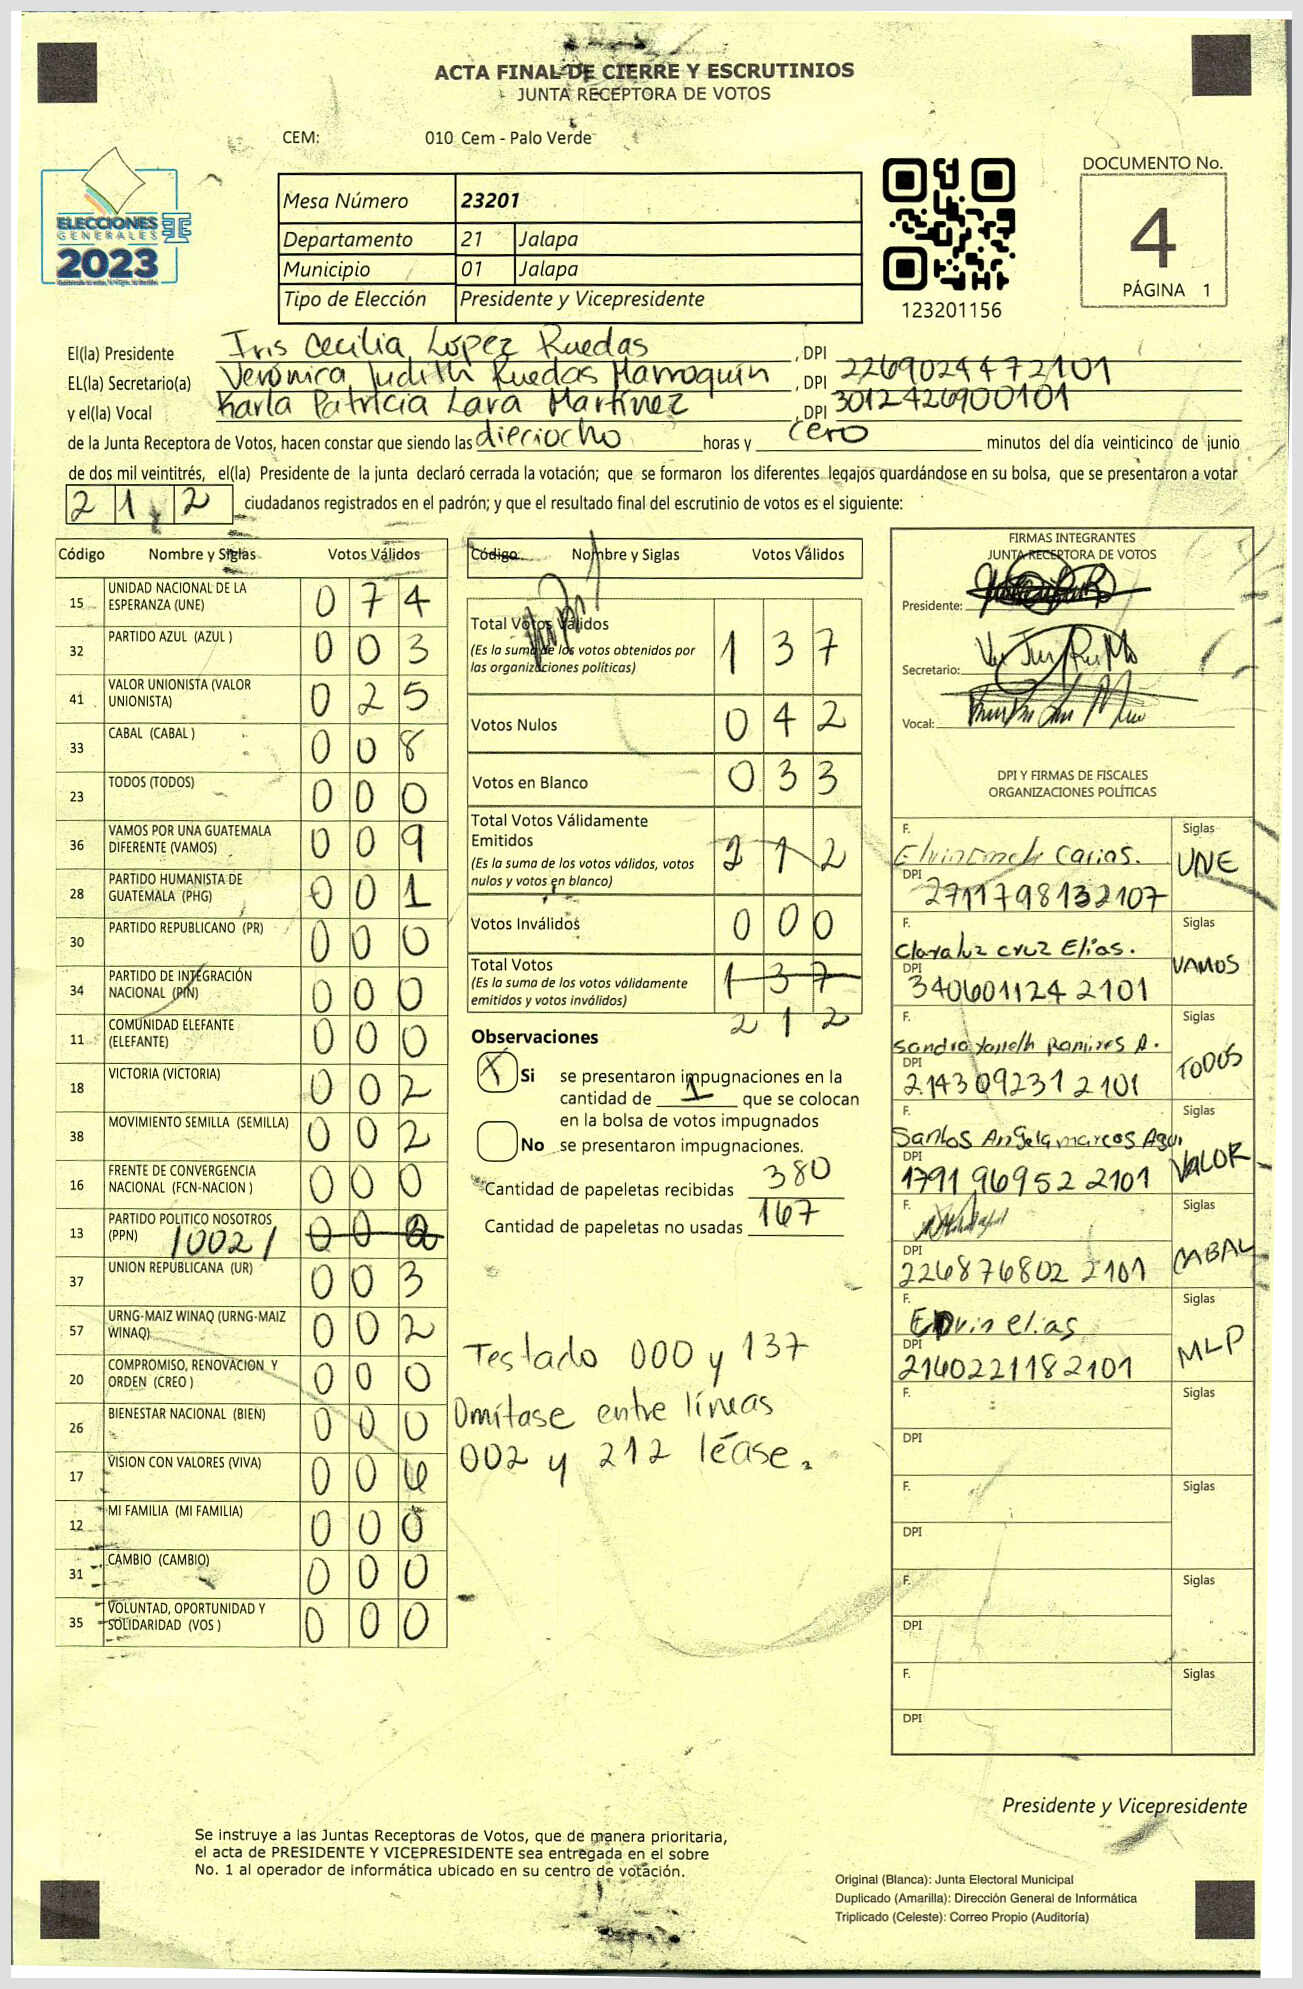 ACTA FINAL DE CIERRE Y ESCRUTINIOS
JUNTA RECEPTORA DE VOTOS
CEM: 010 Cem - Palo Verde
ELECCIONES
GENERALES
2023
Mesa Número 23201
Departamento 21 Jalapa
Municipio 01 Jalapa
Tipo de Elección Presidente y Vicepresidente
123201156
DOCUMENTO No.
4
PÁGINA 1
El(la) Presidente Iris Cecilia López Ruedas, DPI 2269024472101
EL(la) Secretario(a) Verónica Judith Ruedas Marroquín, DPI
y el(la) Vocal Karla Patricia Lara Martínez, DPI 3012426900101
de la Junta Receptora de Votos, hacen constar que siendo las dieciocho horas y cero minutos del día veinticinco de junio
de dos mil veintitrés, el(la) Presidente de la junta declaró cerrada la votación; que se formaron los diferentes legajos quardándose en su bolsa, que se presentaron a votar
212 ciudadanos registrados en el padrón; y que el resultado final del escrutinio de votos es el siguiente:
Código Nombre y Siglas Votos Válidos
15 UNIDAD NACIONAL DE LA ESPERANZA (UNE) 074
32 PARTIDO AZUL (AZUL ) 003
41 VALOR UNIONISTA (VALOR UNIONISTA) 025
33 CABAL (CABAL ) 008
23 TODOS (TODOS) 000
36 VAMOS POR UNA GUATEMALA DIFERENTE (VAMOS) 009
28 PARTIDO HUMANISTA DE GUATEMALA (PHG) 001
30 PARTIDO REPUBLICANO (PR) 000
34 PARTIDO DE INTEGRACIÓN NACIONAL (PIN) 000
11 COMUNIDAD ELEFANTE (ELEFANTE) 000
18 VICTORIA (VICTORIA) 002
38 MOVIMIENTO SEMILLA (SEMILLA) 002
16 FRENTE DE CONVERGENCIA NACIONAL (FCN-NACION ) 000
13 PARTIDO POLITICO NOSOTROS (PPN) /002/ 000
37 UNION REPUBLICANA (UR) 003
57 URNG-MAIZ WINAQ (URNG-MAIZ WINAQ) 002
20 COMPROMISO, RENOVACION Y ORDEN (CREO ) 000
26 BIENESTAR NACIONAL (BIEN) 000
17 VISION CON VALORES (VIVA) 006
12 MI FAMILIA (MI FAMILIA) 000
31 CAMBIO (CAMBIO) 000
35 VOLUNTAD, OPORTUNIDAD Y SOLIDARIDAD (VOS ) 000
Código Nombre y Siglas Votos Válidos
Total Votos Válidos 137
(Es la suma de los votos obtenidos por
las organizaciones políticas)
Votos Nulos 042
Votos en Blanco 033
Total Votos Válidamente
Emitidos 212
(Es la suma de los votos válidos, votos
nulos y votos en blanco)
Votos Inválidos 000
Total Votos 137
(Es la suma de los votos válidamente
emitidos y votos inválidos)
212
Observaciones
X Si se presentaron impugnaciones en la
cantidad de 1 que se colocan
en la bolsa de votos impugnados
No se presentaron impugnaciones.
Cantidad de papeletas recibidas 380
Cantidad de papeletas no usadas 167
Testado 000 y 137
Omítase entre líneas
002 y 212 léase.
FIRMAS INTEGRANTES
JUNTA RECEPTORA DE VOTOS
Presidente:
Secretario:
Vocal:
DPI Y FIRMAS DE FISCALES
ORGANIZACIONES POLÍTICAS
F. Carias. Siglas UNE
DPI 2711798132107
F. Claraluz cruz Elías. Siglas VAMOS
DPI 3406011242101
F. Sandra Ramires A. Siglas TODOS
DPI 2143092312101
F. Santos Angela marcos Siglas VALOR
DPI 1791969522101
F. Siglas CABAL
DPI 2268768022101
F. elias Siglas MLP
DPI 2160221182101
F. Siglas
DPI
F. Siglas
DPI
F. Siglas
DPI
F. Siglas
DPI
Presidente y Vicepresidente
Se instruye a las Juntas Receptoras de Votos, que de manera prioritaria,
el acta de PRESIDENTE Y VICEPRESIDENTE sea entregada en el sobre
No. 1 al operador de informática ubicado en su centro de votación.
Original (Blanca): Junta Electoral Municipal
Duplicado (Amarilla): Dirección General de Informática
Triplicado (Celeste): Correo Propio (Auditoría)